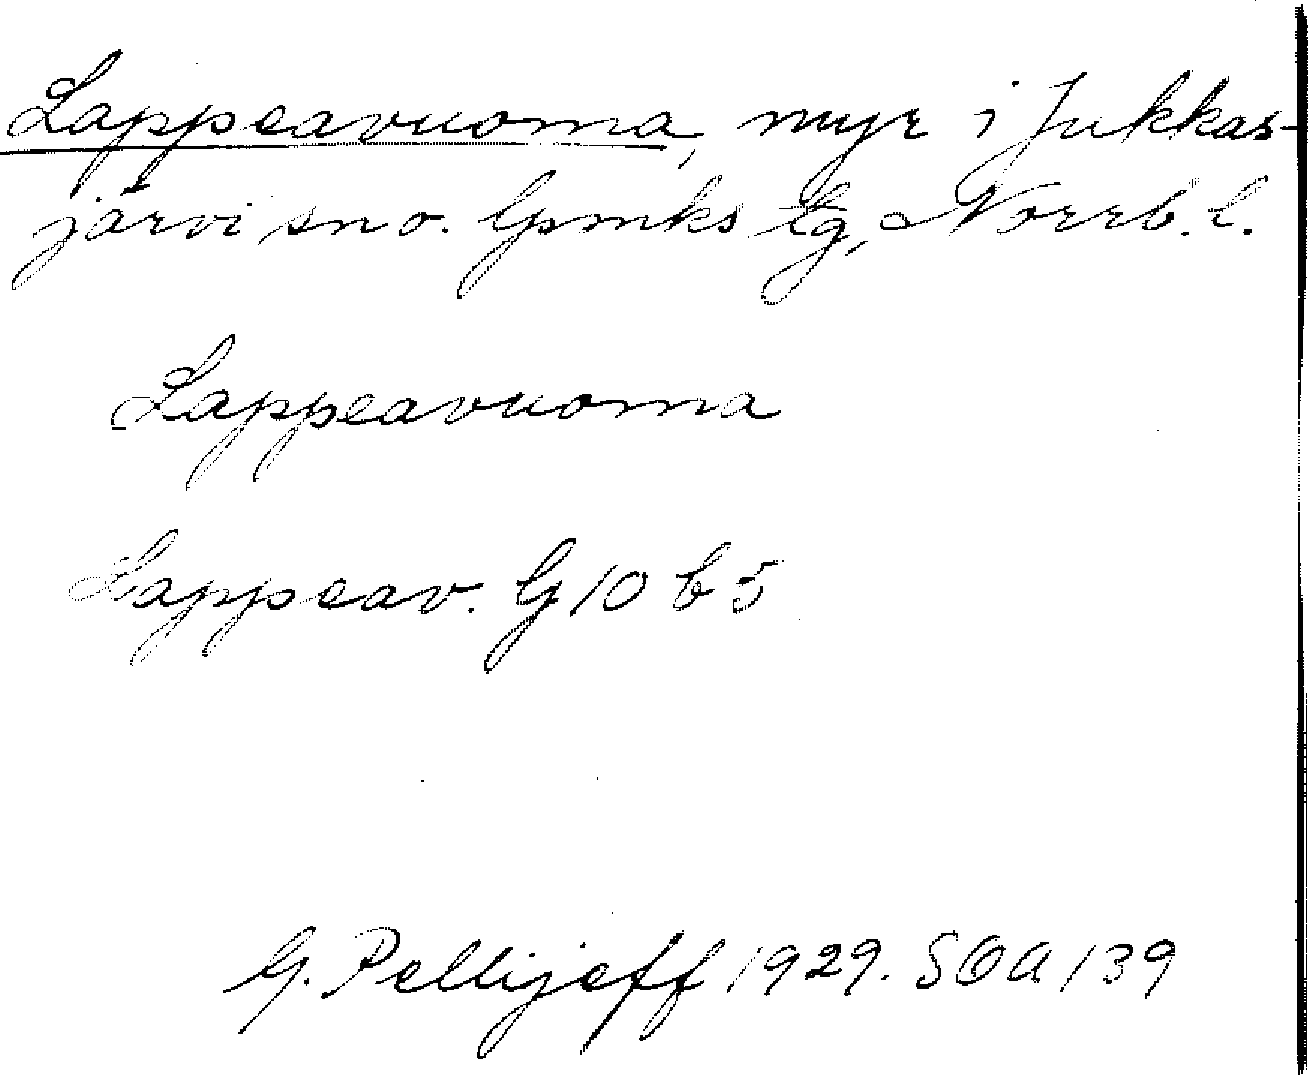 Lappeavuoma, myr i Jukkas-
järvi sn o. lpmks tg, Norrb. l.
Lappeavuoma
Lappeav. G 10 b 5
G. Pellijeff 1929. SOA 139